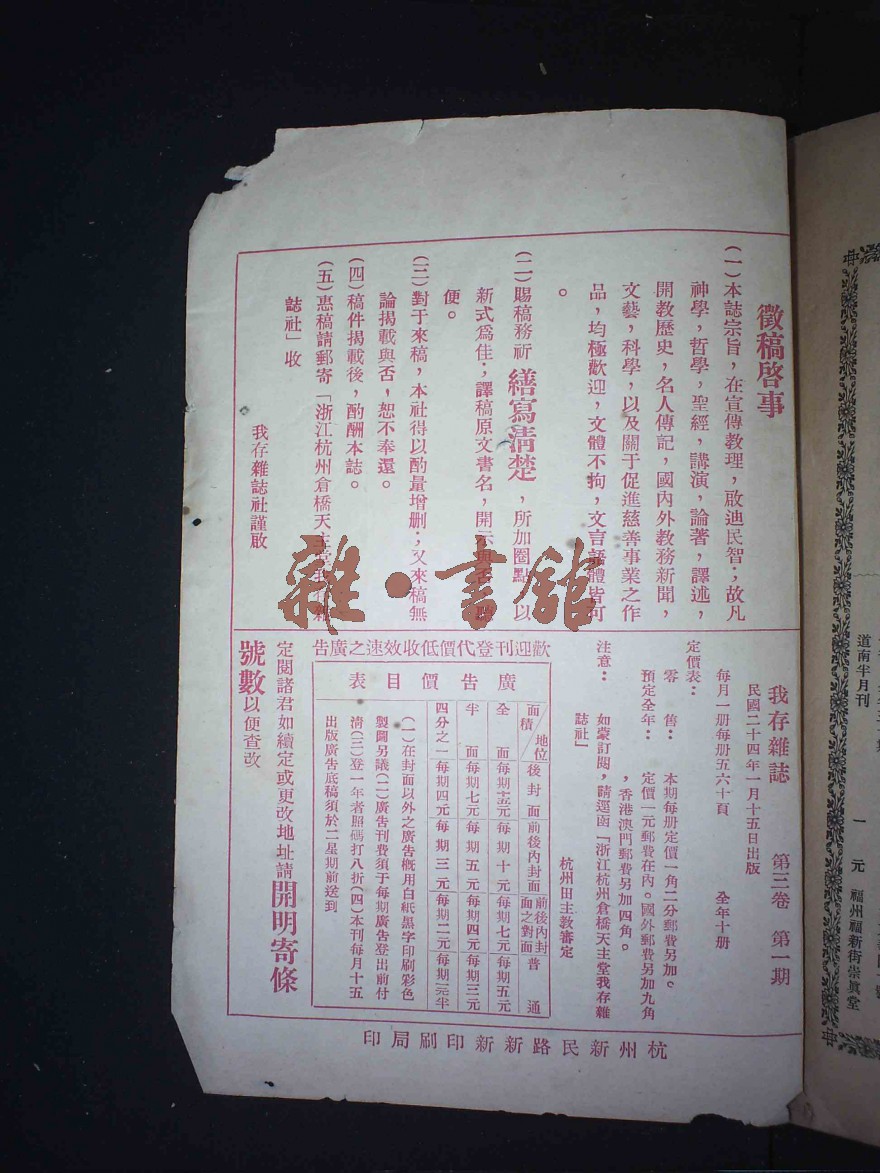 徵稿啓事
(一)本誌宗旨，在宣傳教理，啟迪民智；故凡
神學，哲學，聖經，講演，論著，譯述，
開教歷史，名人傳記，國內外教務新聞，
文藝，科學，以及關于促進慈善事業之作
品，均極歡迎，文體不拘，文言語體皆可
。
(二)賜稿務祈繕寫清楚，所加圈點，以
新式爲佳；譯稿原文書名，開示
便。
(三)對于來稿，本社得以酌量增刪；又來稿無
論揭載與否，恕不奉還。
(四)稿件揭載後，酌酬本誌。
(五)惠稿請郵寄「浙江杭州倉橋天主堂我存雜
誌社」收
我存雜誌社謹啟
我存雜誌 第三卷 第一期
民國二十四年一月十五日出版
每月一册每册五六十頁 全年十册
定價表：
零售： 本期每册定價一角二分郵費另加。
預定全年： 定價一元郵費在內。國外郵費另加九角
，香港澳門郵費另加四角。
注意： 如蒙訂閱，請逕函「浙江杭州倉橋天主堂我存雜
誌社」
杭州田主教審定
歡迎刊登代價低收效速之廣告
廣告價目表
面積/地位 後封面 前後內封面 前後內封面之對面 普通
全面 每期十五元 每期十元 每期七元 每期五元
半面 每期七元 每期五元 每期四元 每期三元
四分之一 每期四元 每期三元 每期二元 每期一元半
(一)在封面以外之廣告概用白紙黑字印刷彩色
製圖另議(二)廣告刊費須于每期廣告登出前付
清(三)登一年者照碼打八折(四)本刊每月十五
出版廣告底稿須於二星期前送到
定閱諸君如續定或更改地址請開明寄條
號數以便查改
杭州新民路新新印刷局印
雜·書館
道南半月刊 一元 福州福新街崇眞堂